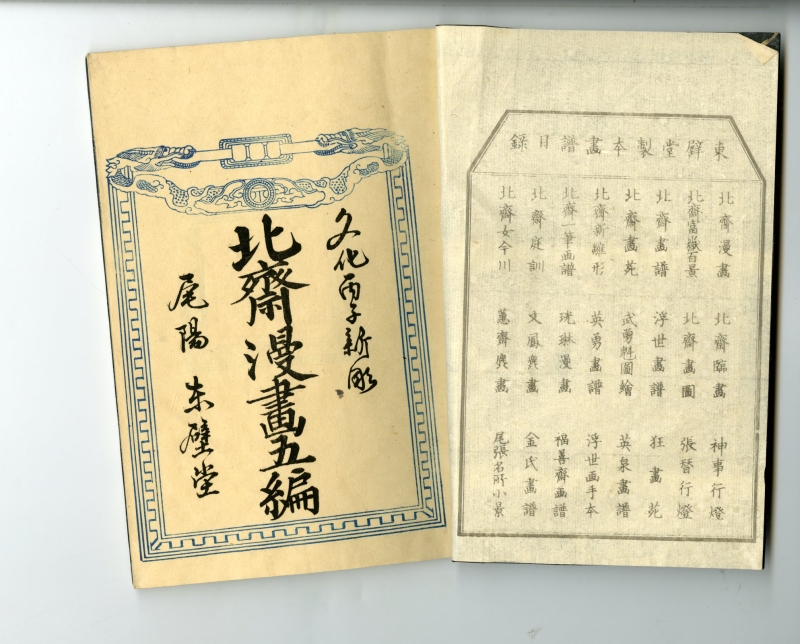 東壁堂製本畫譜目録
北齋漫畫
北齋臨畫
神事行燈
北齋富嶽百景
北齋畫圖
張替行燈
北齋畫譜
浮世畫譜
狂畫苑
北齋畫苑
武勇魁圖繪
英泉畫譜
北齋新雛形
英勇畫譜
浮世画手本
北齋一筆画譜
光琳漫畫
福善齋画譜
北齋庭訓
文鳳麁畫
金氏畫譜
北齋女今川
蕙齋麁畫
尾張名所小景
文化丙子新彫
北齋漫畫五編
尾陽 東壁堂